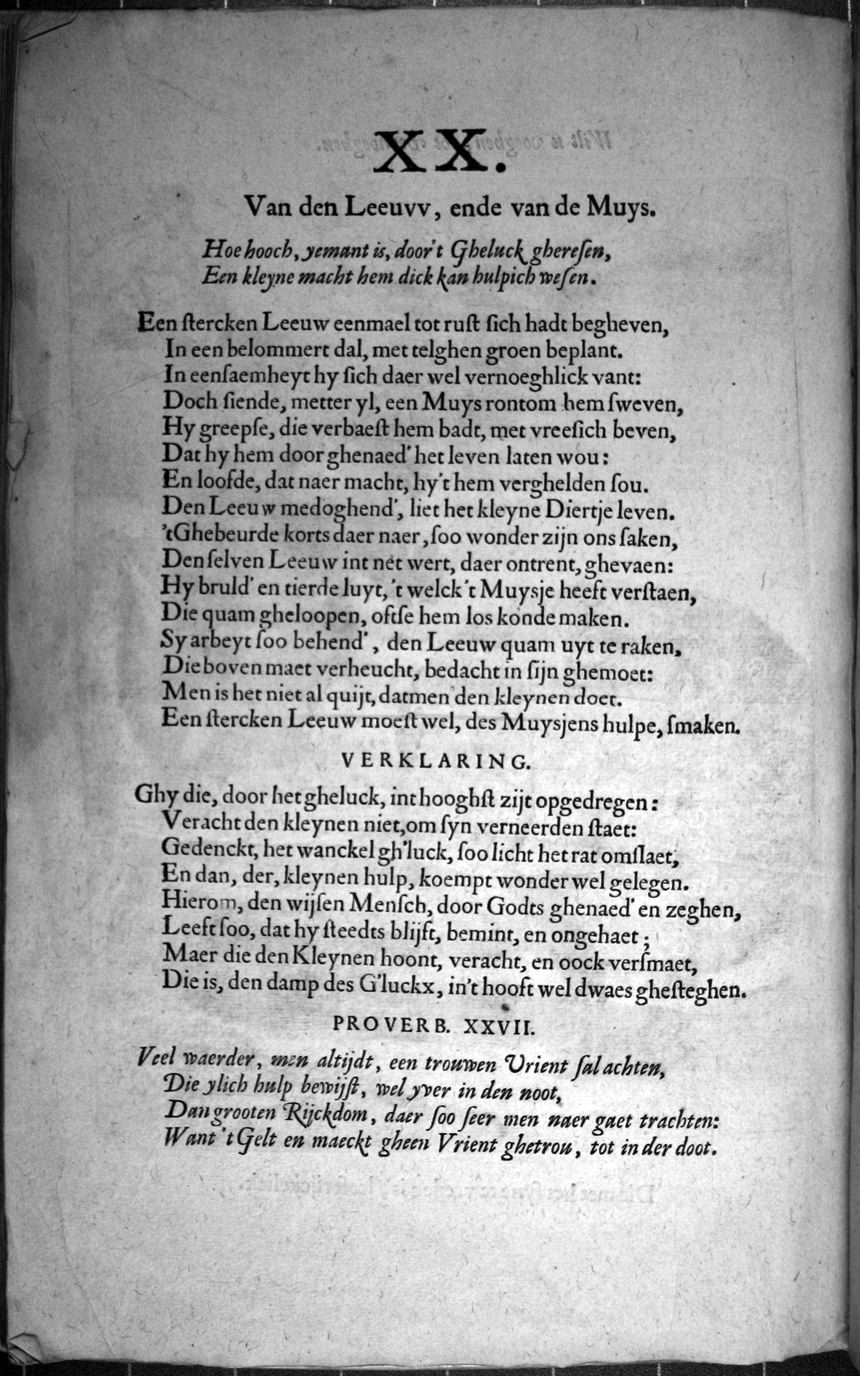 XX.
Van den Leeuvv, ende van de Muys.
Hoe hooch, yemant is, door't Gheluck ghereſen,
Een kleyne macht hem dick kan hulpich weſen.
Een ſtercken Leeuw eenmael tot ruſt ſich hadt begheven,
In een belommert dal, met telghen groen beplant.
In eenſaemheyt hy ſich daer wel vernoeghlick vant:
Doch ſiende, metter yl, een Muys rontom hem ſweven,
Hy greepſe, die verbaeſt hem badt, met vreeſich beven,
Dat hy hem door ghenaed' het leven laten wou:
En loofde, dat naer macht, hy't hem verghelden ſou.
Den Leeuw medoghend', liet het kleyne Diertje leven.
'tGhebeurde korts daer naer, ſoo wonder zijn ons ſaken,
Den ſelven Leeuw int net wert, daer ontrent, ghevaen:
Hy bruld' en tierde luyt, 't welck 't Muysje heeft verſtaen,
Die quam gheloopen, oftſe hem los konde maken.
Sy arbeyt ſoo behend', den Leeuw quam uyt te raken,
Die boven maet verheucht, bedacht in ſijn ghemoet:
Men is het niet al quijt, datmen den kleynen doet.
Een ſtercken Leeuw moeſt wel, des Muysjens hulpe, ſmaken.
VERKLARING.
Ghy die, door het gheluck, int hooghſt zijt opgedregen:
Veracht den kleynen niet, om ſyn verneerden ſtaet:
Gedenckt, het wanckel gh'luck, ſoo licht het rat omſlaet,
En dan, der, kleynen hulp, koempt wonder wel gelegen.
Hierom, den wijſen Menſch, door Godts ghenaed' en zeghen,
Leeft ſoo, dat hy ſteedts blijft, bemint, en ongehaet;
Maer die den Kleynen hoont, veracht, en oock verſmaet,
Die is, den damp des G'luckx, in't hooft wel dwaes gheſteghen.
PROVERB. XXVII.
Veel waerder, men altijdt, een trouwen Vrient ſal achten,
Die ylich hulp bewijſt, wel yver in den noot,
Dan grooten Rijckdom, daer ſoo ſeer men naer gaet trachten:
Want 't Gelt en maeckt gheen Vrient ghetrou, tot in der doot.